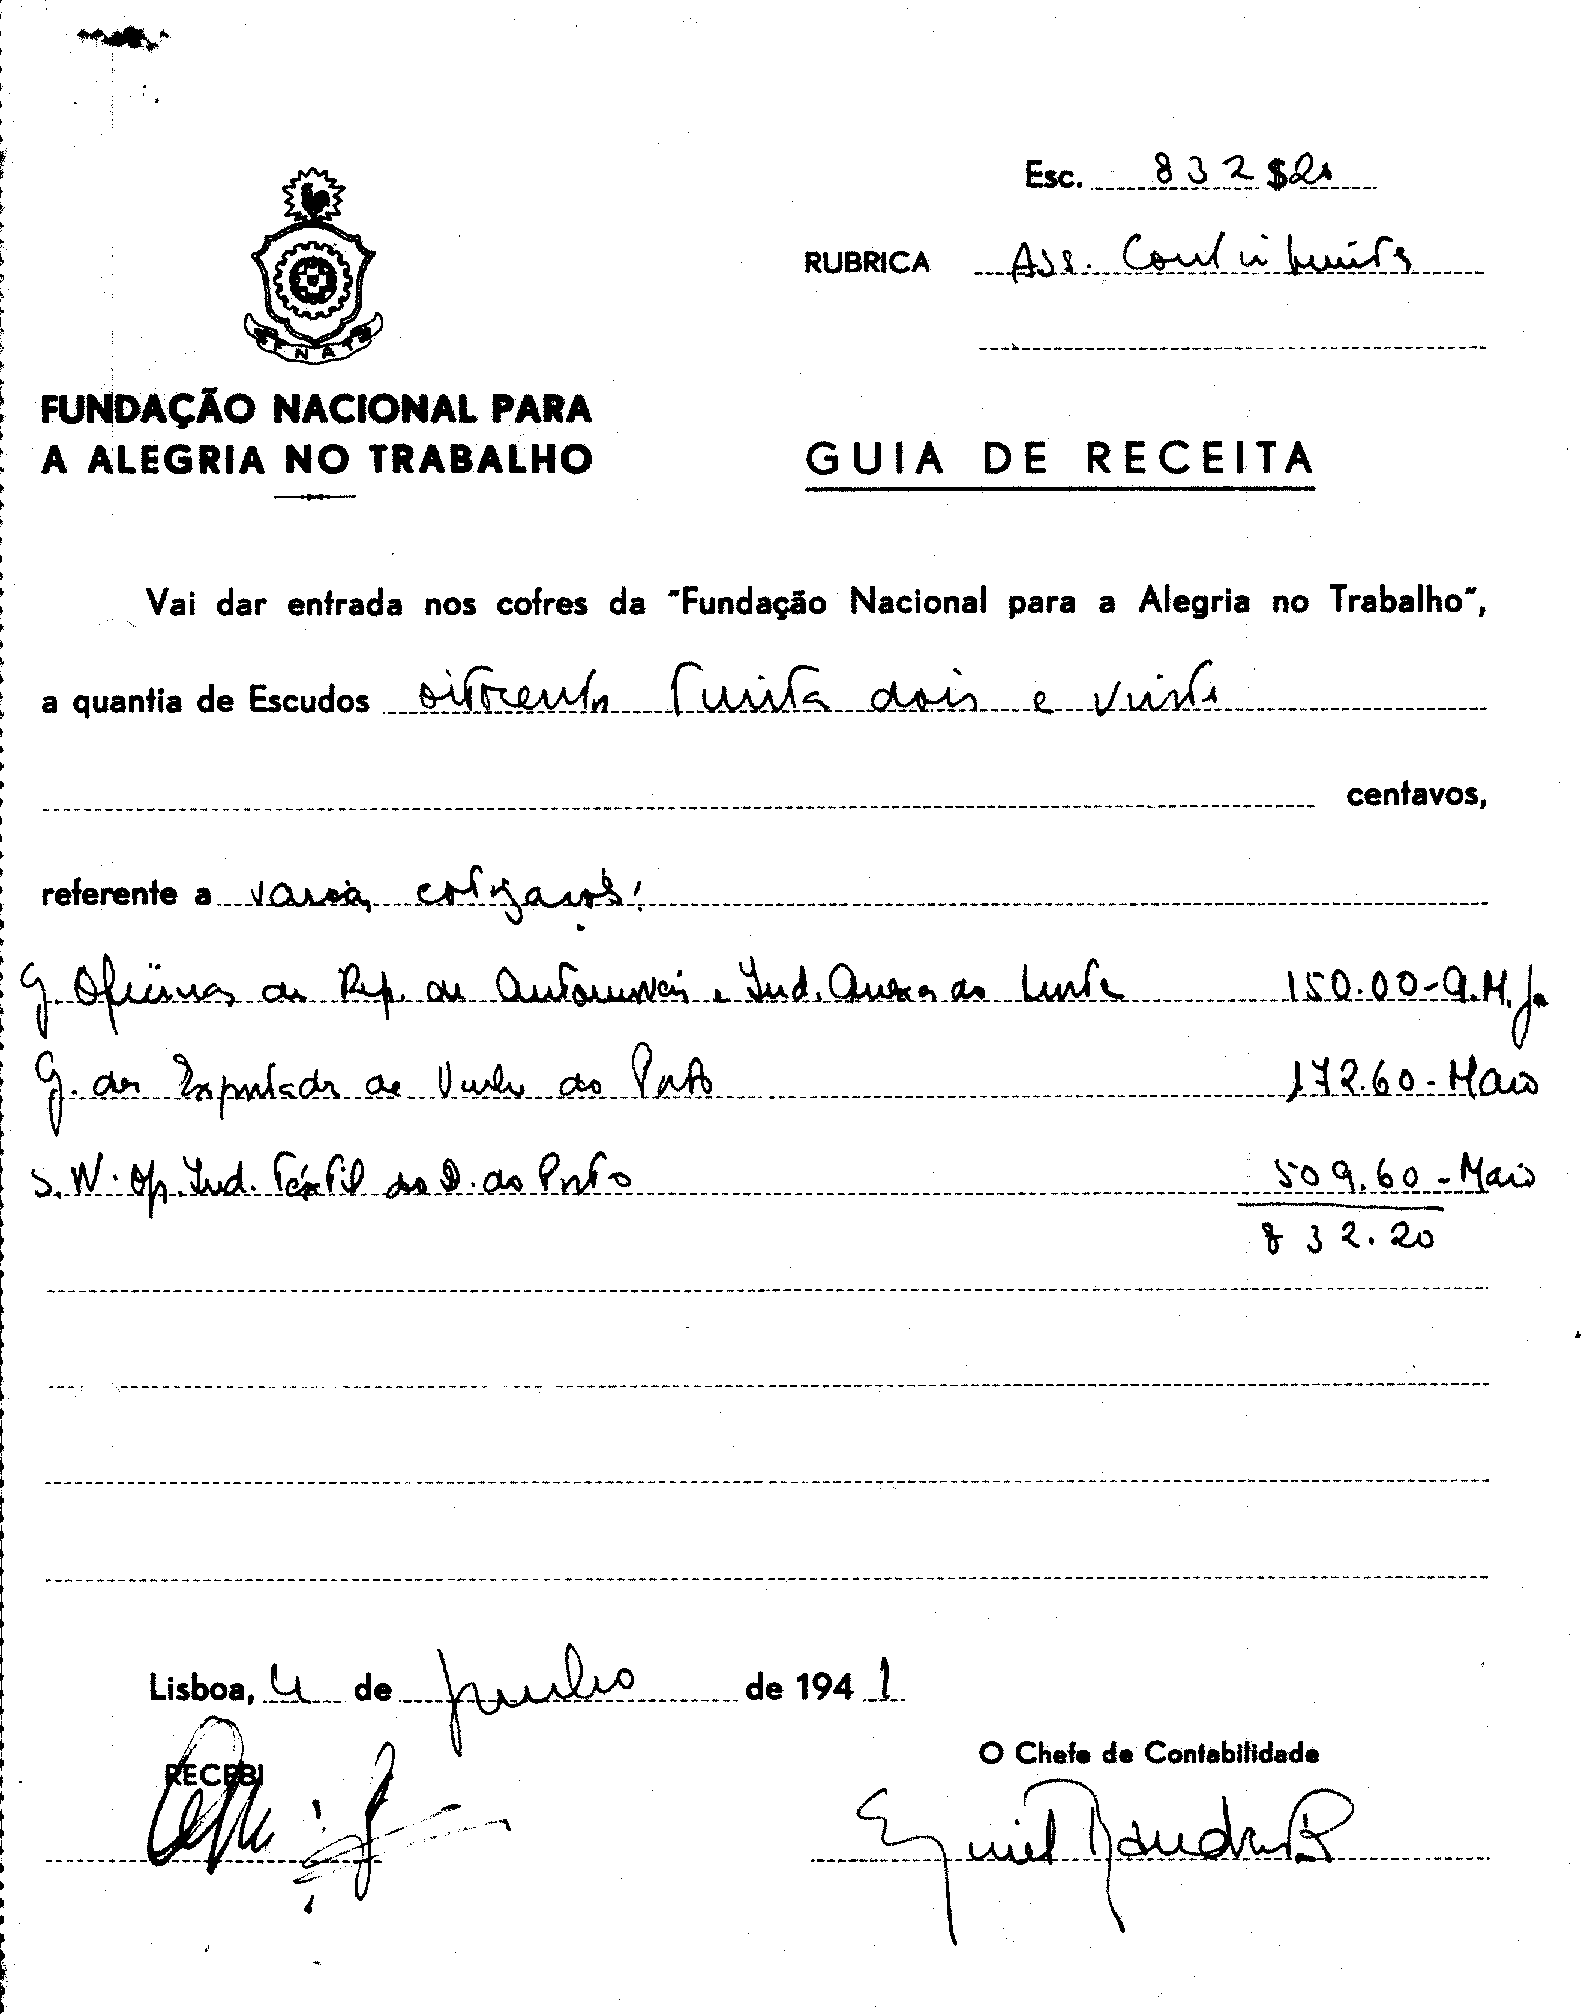 Esc. 832$20
RUBRICA Ass. Contribuintes
FNAT
FUNDAÇÃO NACIONAL PARA
A ALEGRIA NO TRABALHO
GUIA DE RECEITA
Vai dar entrada nos cofres da "Fundação Nacional para a Alegria no Trabalho",
a quantia de Escudos oitocentos trinta dois e vinte
centavos,
referente a varias cotizações:
G. Oficinas de Rep. de Automoveis e Ind. Anexas do Norte 150.00-A.M.J.
G. dos Exportadores de Vinho do Porto 172.60-Maio
S. N. Op. Ind. Textil do D. do Porto 509.60-Maio
832.20
Lisboa, 4 de Junho de 1941
RECEBI
O Chefe de Contabilidade